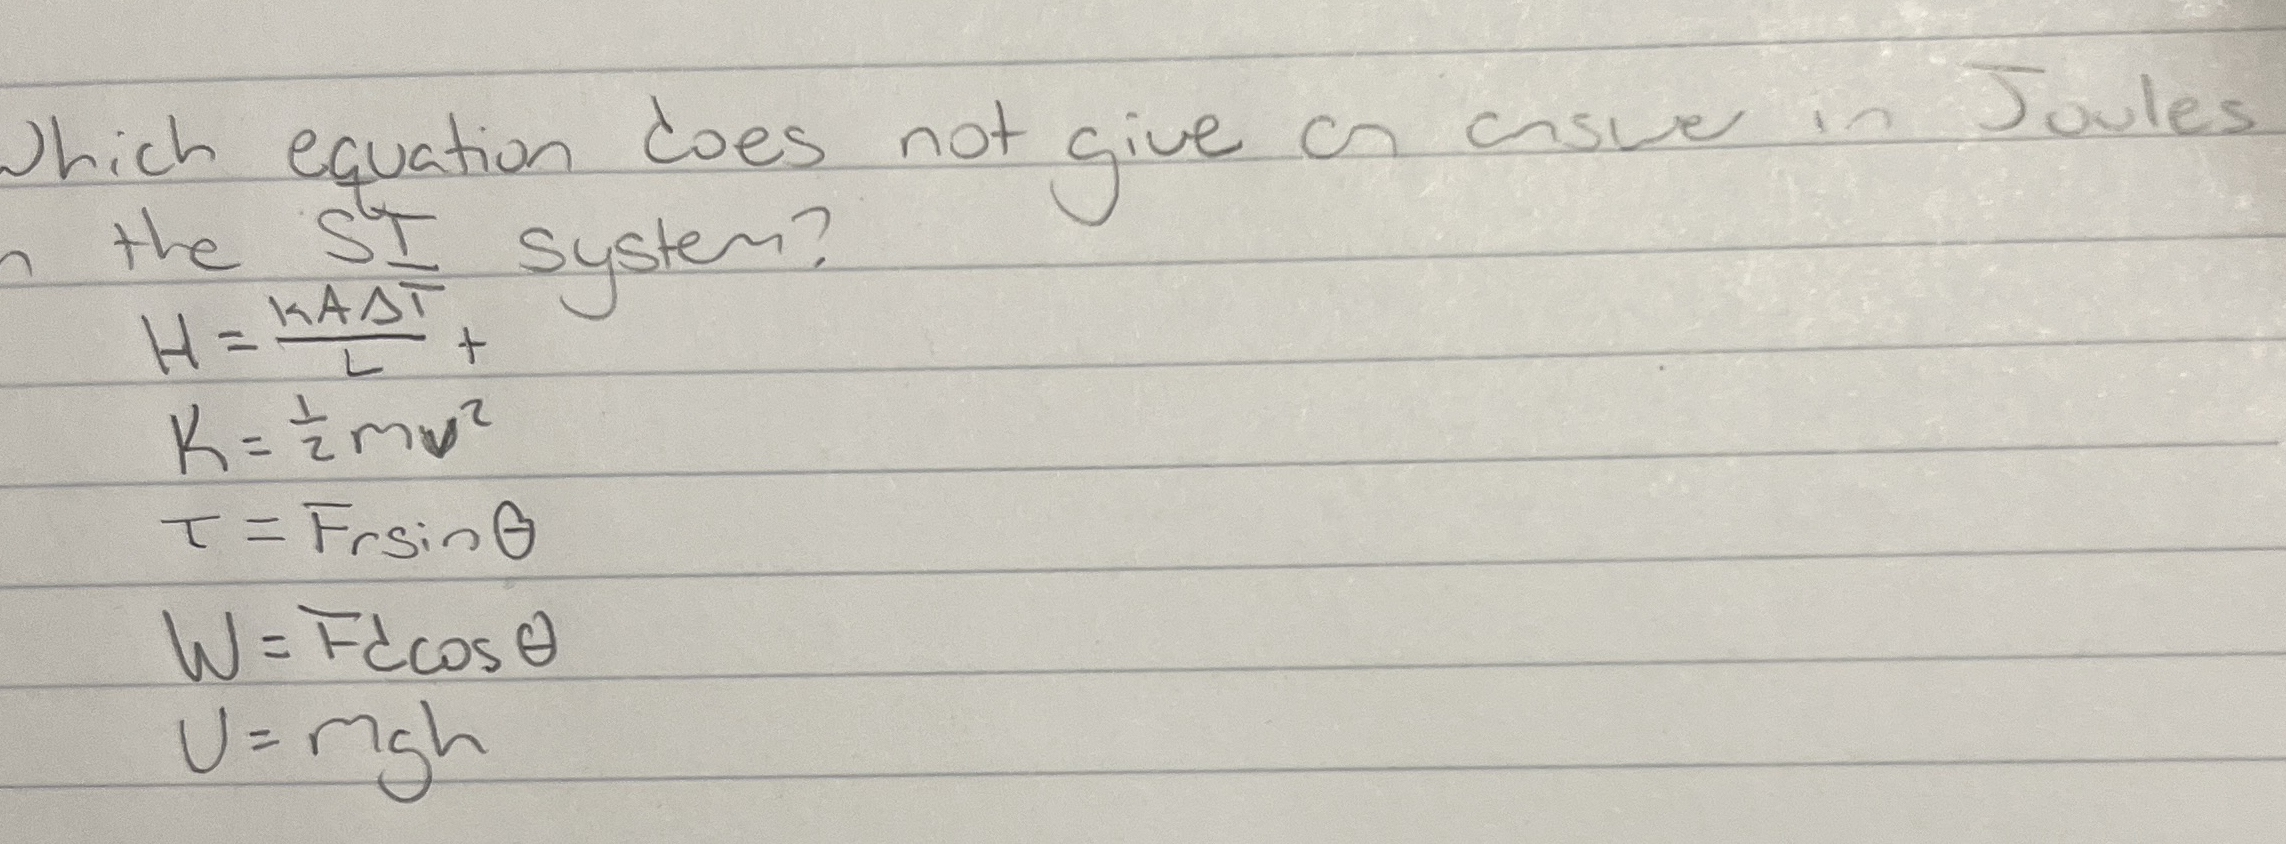 Which equation does not give an answer in Joules
n the SI system?
H = kAΔT/L t
K = 1/2 mv²
τ = Frsinθ
W = Fdcosθ
U = mgh